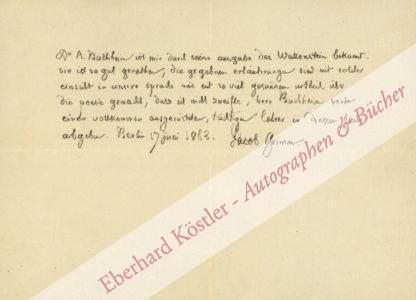 Dr A. Buchheim ist mir durch seine ausgabe des Wallenstein bekannt.
sie ist so gut gerathen, die gegebnen erläuterungen sind mit solcher
einsicht in unsere sprache und mit so viel gesundem urtheil über
die poesie gemacht, dass ich nicht zweifle, herr Buchheim werde
einen vollkommen ausgerüsteten, tüchtigen lehrer in diesem fach
abgeben. Berlin 17 juni 1862. Jacob Grimm
Eberhard Köstler - Autographen & Bücher